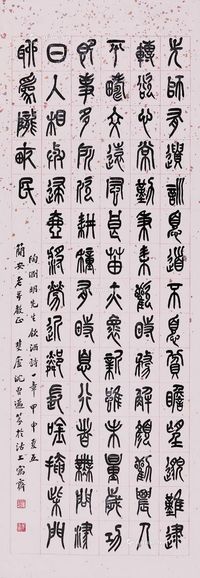 先師有遺訓憂道不憂貧瞻望邈難逮
轉欲心常勤秉耒歡時務解顏勸農人
平疇交遠風良苗亦懷新雖未量歲功
即事多所欣耕種有時息行者無問津
日入相與歸壺漿勞近鄰長吟掩柴門
聊為隴畝民
陶淵明先生飲酒詩一章 甲申夏五
簡安老哥教正 沈曾邁篆於滬上寓齋